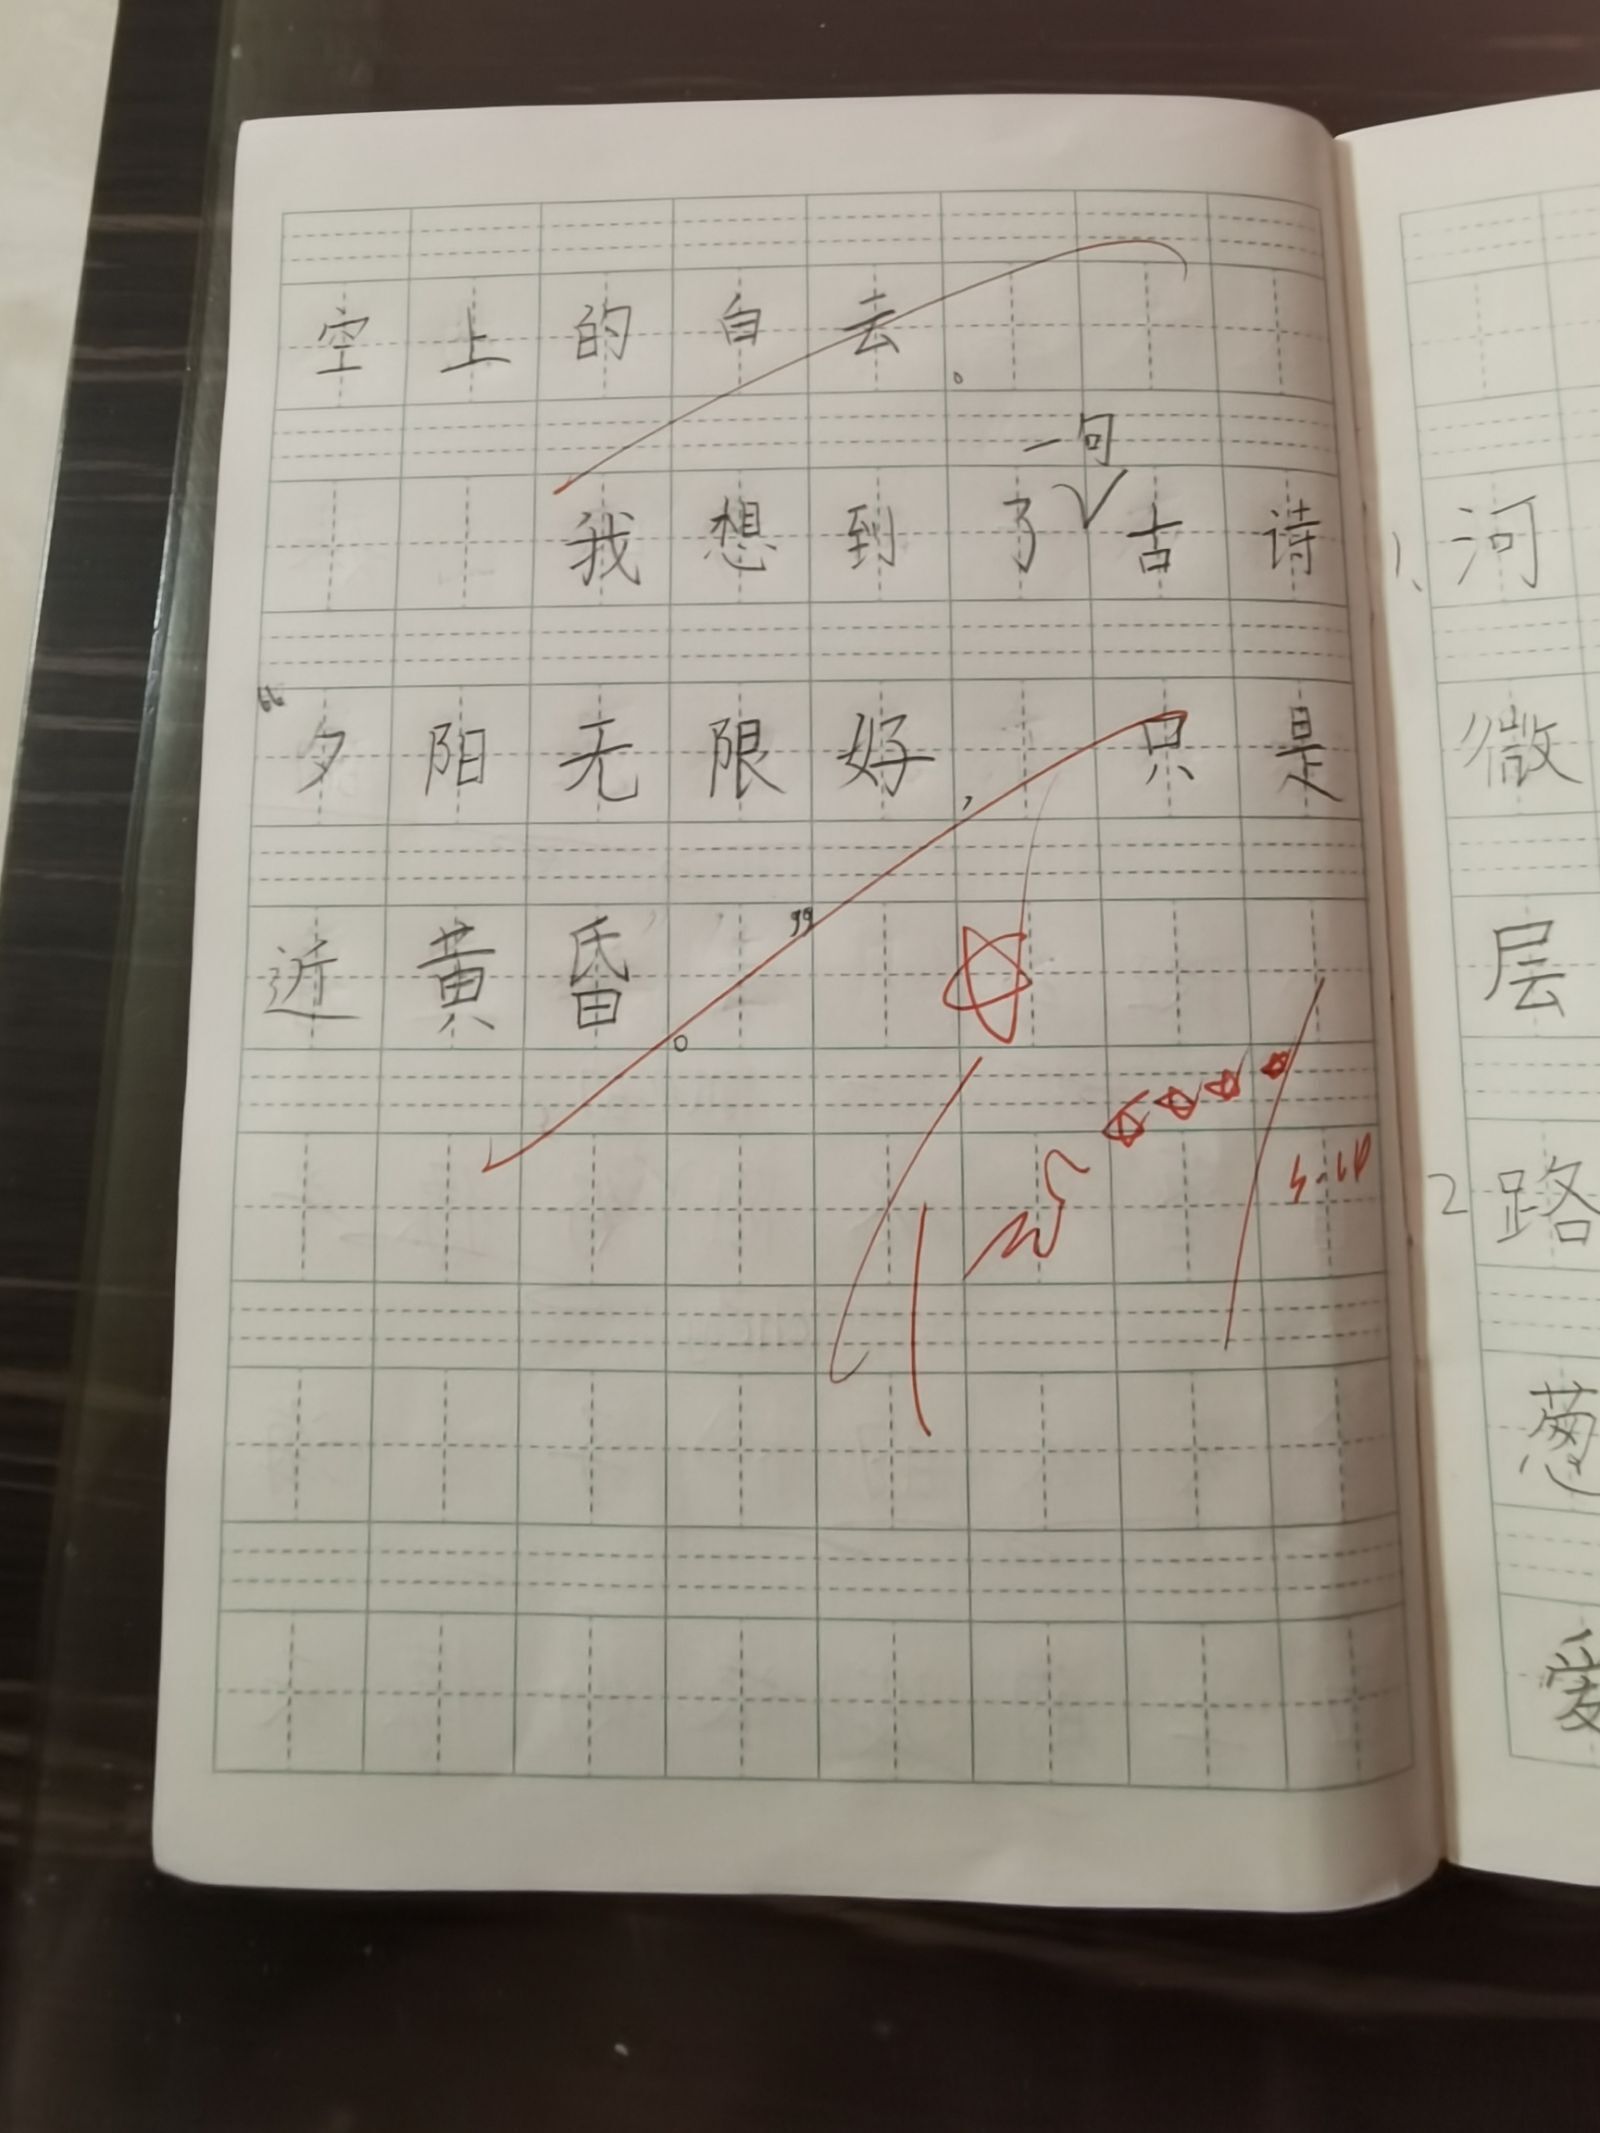 空上的白云。
我想到了一句古诗
“夕阳无限好，只是
近黄昏”。
1、河
微
层
2路
葱
爱